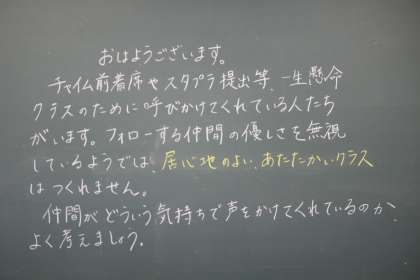 おはようございます。
チャイム前着席やスタプラ提出等、一生懸命
クラスのために呼びかけてくれている人たち
がいます。フォローする仲間の優しさを無視
しているようでは、居心地のよい、あたたかいクラス
はつくれません。
仲間がどういう気持ちで声をかけてくれているのか、
よく考えましょう。